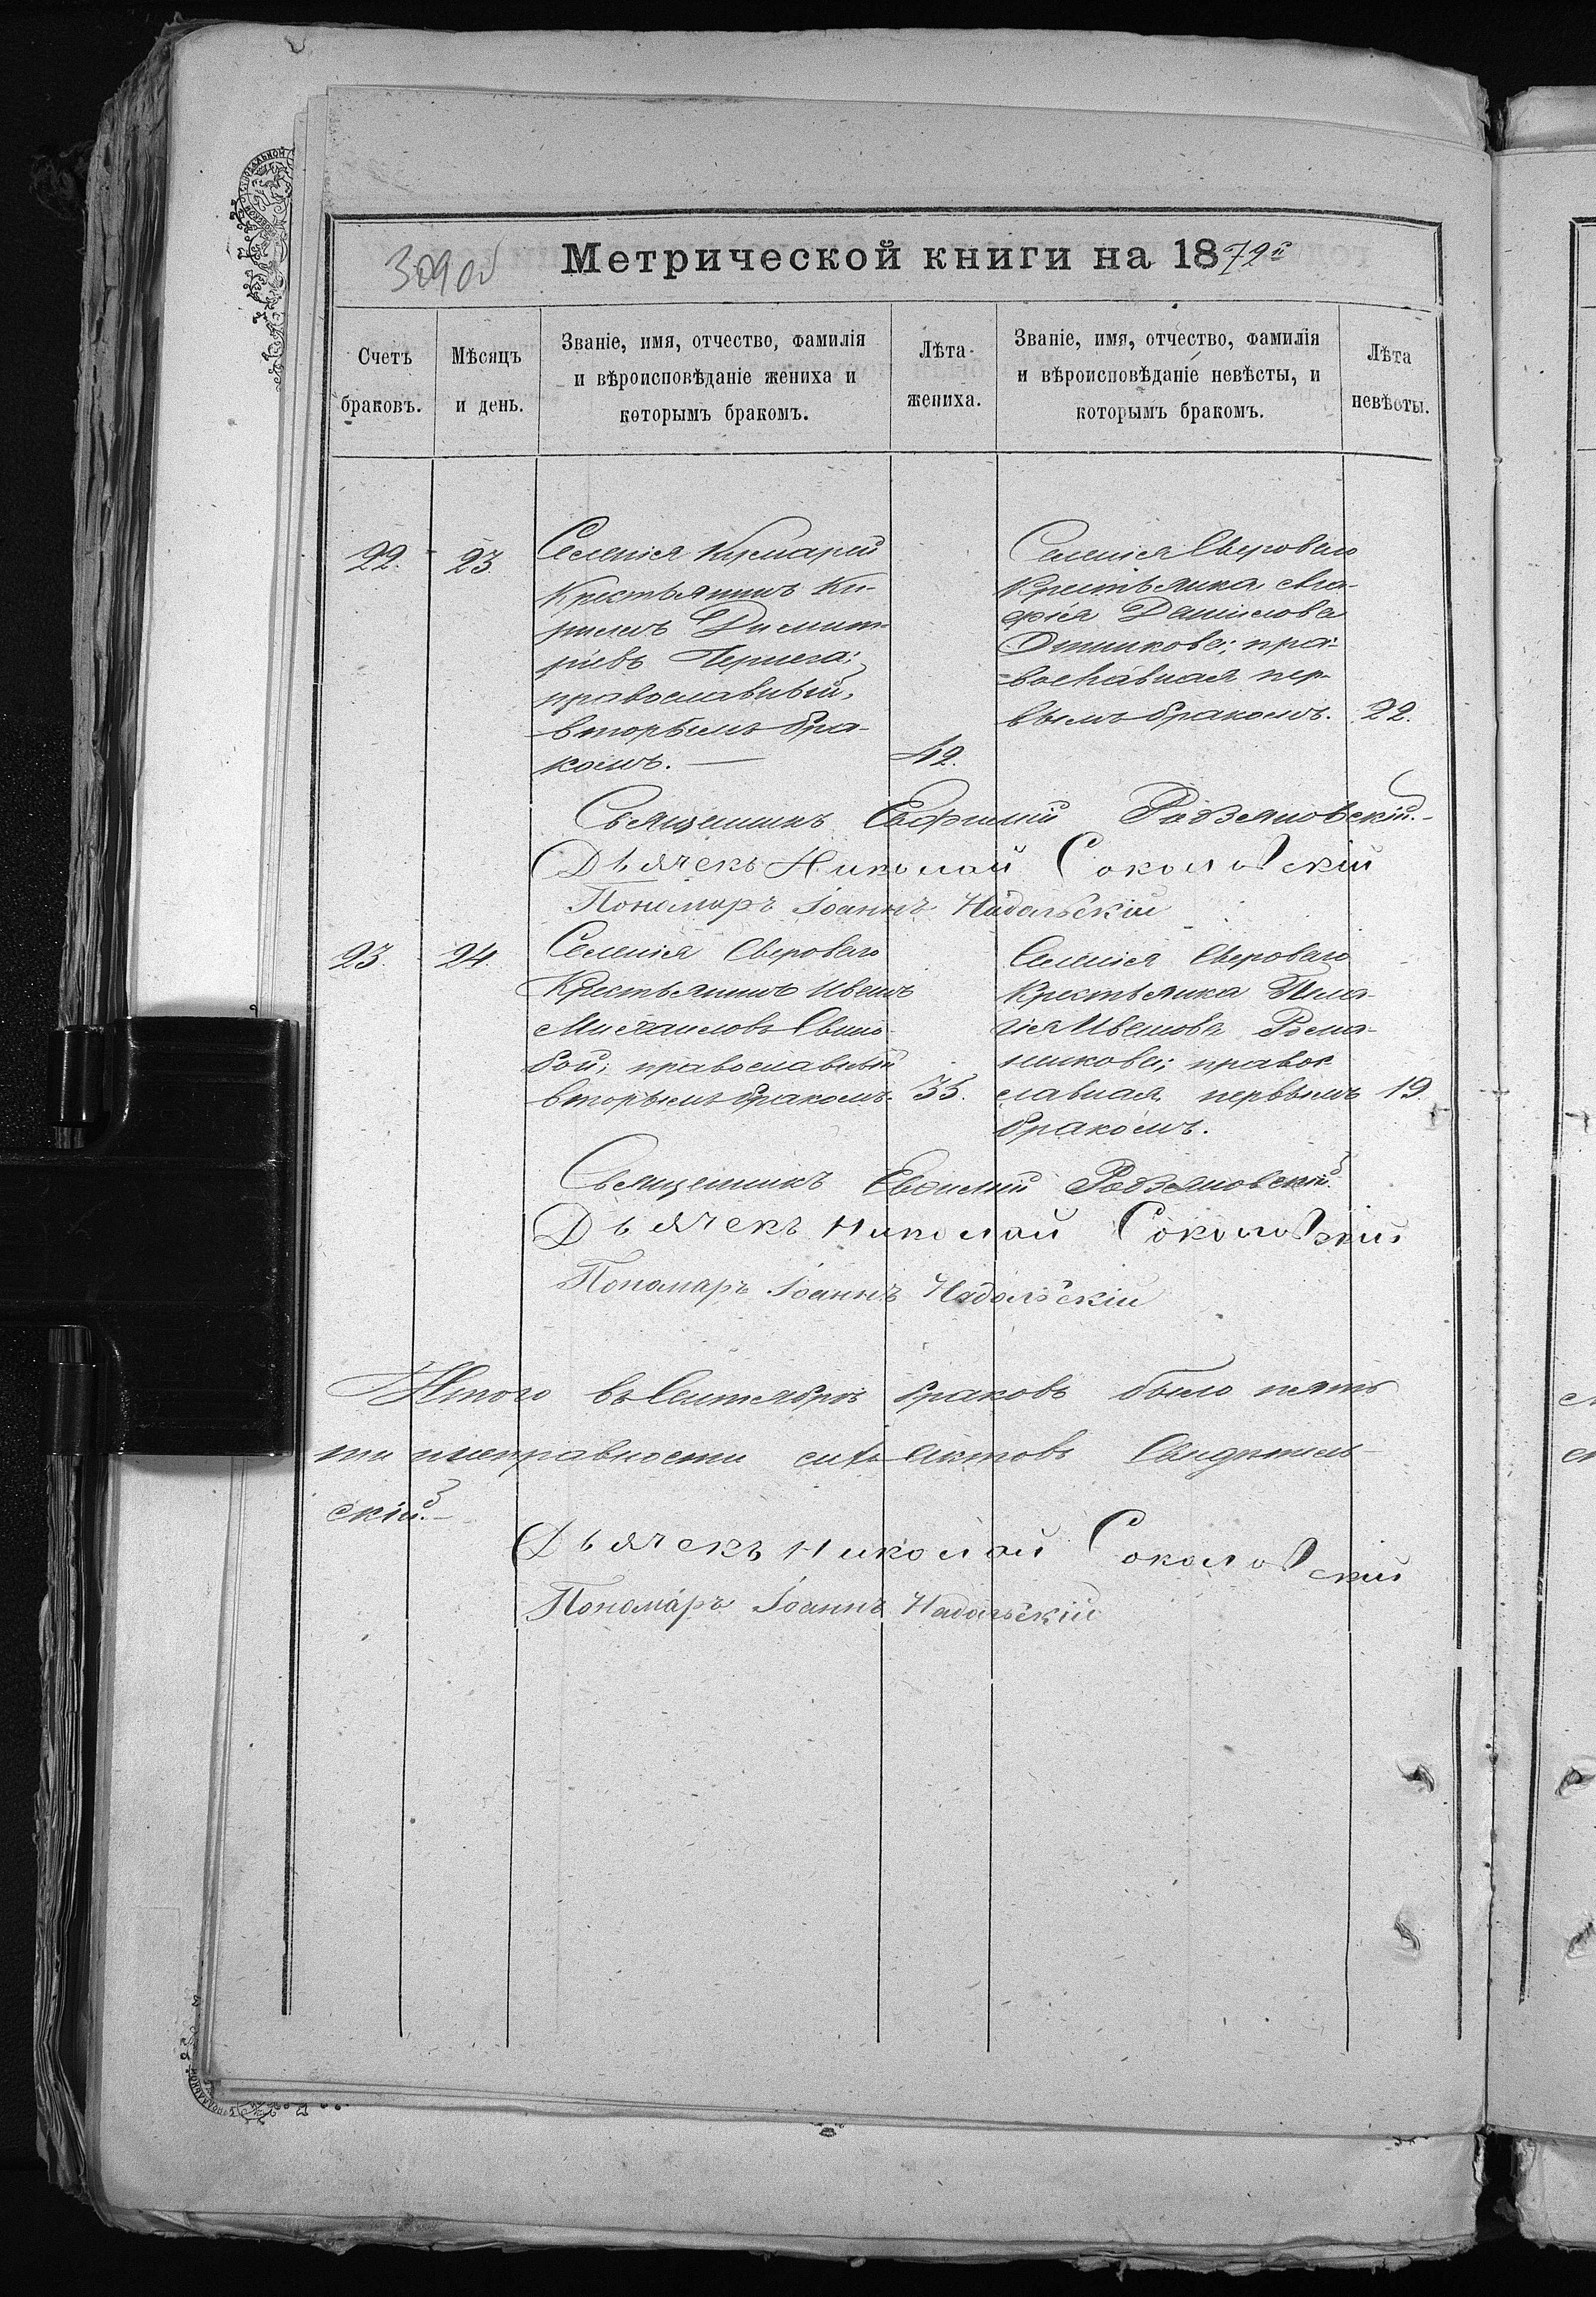 309об
Метрической книги на 1872й
Счетъ браковъ.
Мѣсяцъ и день.
Званіе, имя, отчество, фамилія и вѣроисповѣданіе жениха и которымъ бракомъ.
Лѣта жениха.
Званіе, имя, отчество, фамилія и вѣроисповѣданіе невѣсты, и которымъ бракомъ.
Лѣта невѣсты.
22.
23.
Селенія
Крестьянинъ Ки-
рилъ Димит-
ріевъ Чернега;
православный,
вторымъ бра-
комъ.
42.
Селенія Сверовало
Крестьянка Ага-
фія Данилова
православная пер-
вымъ бракомъ.
22.
Священникъ Евфимій Радзяновскій.
Дьячекъ Николай Соколовскій
Пономаръ Іоаннъ Надольскій
23.
24.
Селенія Сверовало
Крестьянинъ Иванъ
Михаиловъ
православный
вторымъ бракомъ.
35.
Селенія Сверовало
Крестьянка Пела-
гія Иванова Рома-
никова; правос
славная, первымъ
бракомъ.
19
Священникъ Евѳимій Радзяновскій
Дьячекъ Николай Соколовскій
Пономаръ Іоаннъ Надольскій
Итого въ Сентябрѣ браковъ было пять
исправности сихъ Актовъ Свидѣтель-
скій.
Дьячекъ Николай Соколовскій
Пономáръ Іоаннъ Надольскій